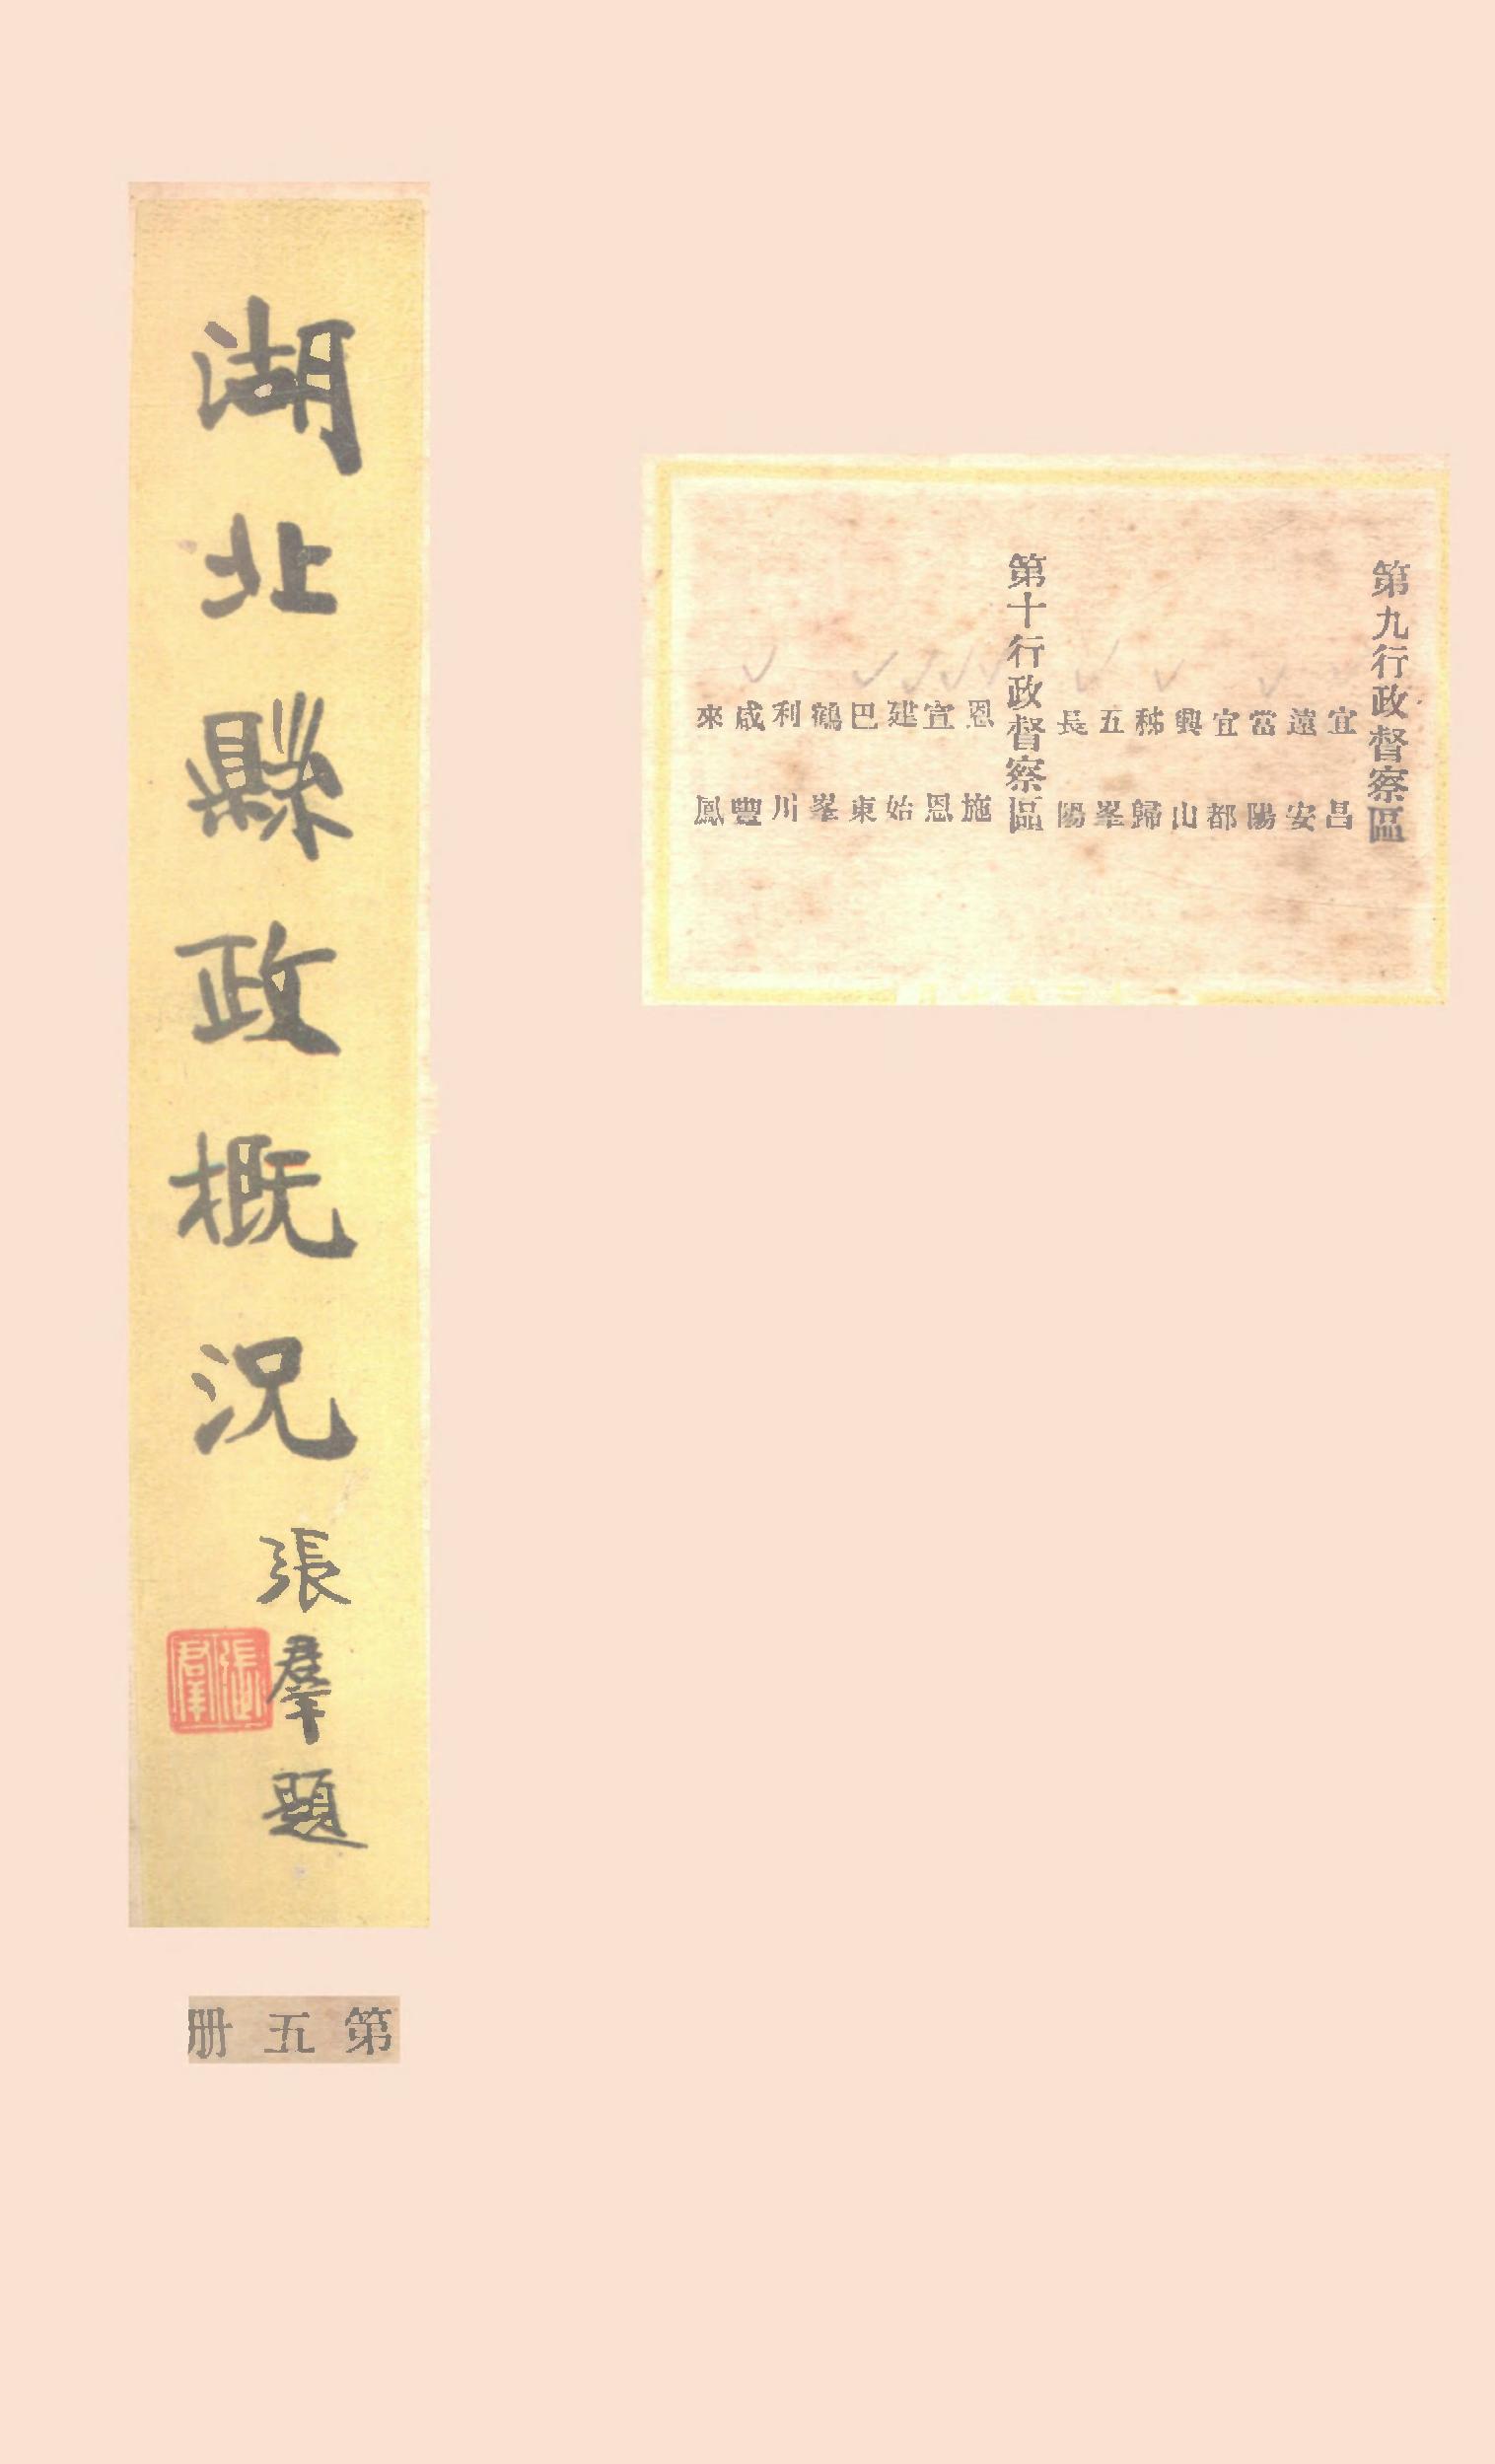 第九行政督察區
宜昌
遠安
當陽
宜都
興山
秭歸
五峯
長陽
第十行政督察區
恩施
宣恩
建始
巴東
鶴峯
利川
咸豐
來鳳
湖北縣政概況
張羣題
張羣
第五册